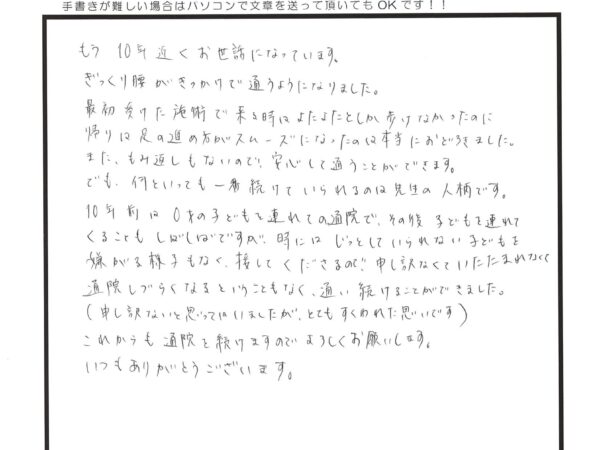 手書きが難しい場合はパソコンで文章を送って頂いてもOKです！！
もう10年近くお世話になっています。
ぎっくり腰がきっかけで通うようになりました。
最初受けた施術で来る時はよたよたとしか歩けなかったのに
帰りは足の進め方がスムーズになったのは本当におどろきました。
また、もみ返しもないので、安心して通うことができます。
でも、何といっても一番続けていられるのは先生の人柄です。
10年前は0才の子どもを連れての通院で、その後子どもを連れて
くることもしばしばですが、時にはじっとしていられない子どもを
嫌がる様子もなく、接してくださるので、申し訳なくていたたまれなくて
通院しづらくなるということもなく、通い続けることができました。
（申し訳ないと思ってはいましたが、とてもすくわれた思いです）
これからも通院を続けますのでよろしくお願いします。
いつもありがとうございます。